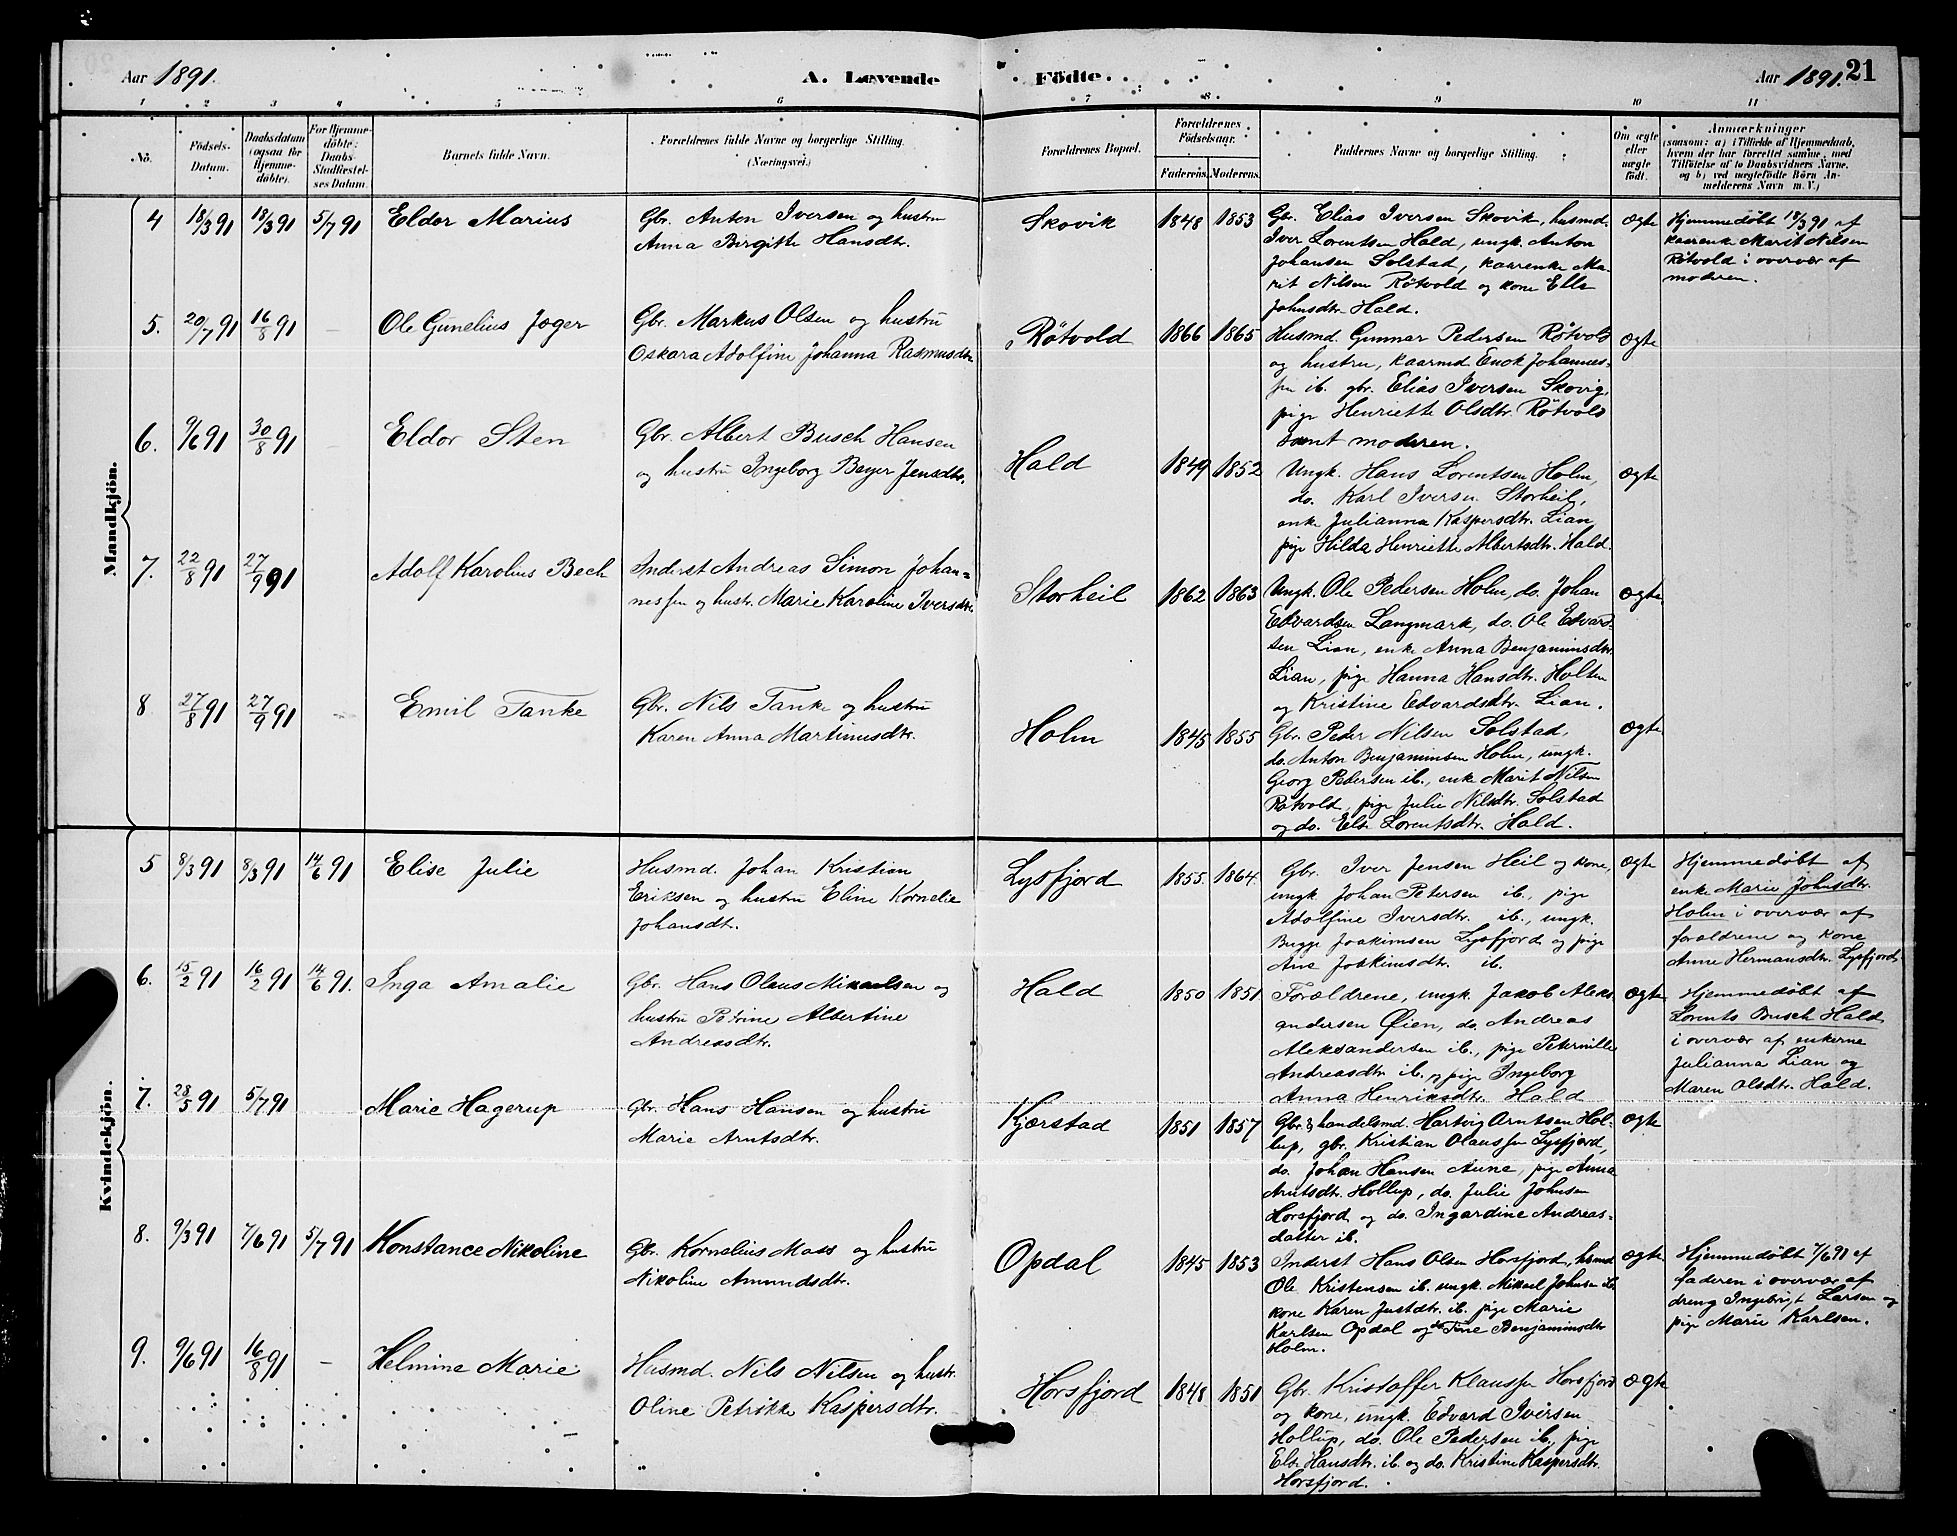 Aar 1891.
A. Levende
Födte.
Aar 1891. 21
1 2 3 4 5 6 7 8 9 10 11
No.
Födsels-
Datum.
Daabsdatum
(ogsaa for
Hjemme-
döbte).
For Hjemme-
döbte:
Daabs-
Stadfæstel-
ses Datum.
Barnets fulde Navn.
Forældrenes fulde Navne og borgerlige Stilling.
(Næringsvei.)
Forældrenes Bopæl.
Forældrenes
Födselsaar.
Faderens. Moderens.
Faddernes Navne og borgerlige Stilling.
Om ægte
eller
uægte
födt.
Anmærkninger
(saasom: a) i Tilfælde af Hjemmedaab,
hvem der har forrettet samme, med
Tilföielse af to Daabsvidners Navne,
og b) ved uægtefödte Börn An-
melderens Navn m. V.)
Mandkjön.
4 18/3 91 18/3 91 5/7 91 Eldor Marius
Gbr. Anton Iversen og hustru
Anna Birgitte Hansdtr.
Skovik 1848 1853
Gbr. Elias Iversen Skovik, husmd.
Iver Lorentsen Hald, ungk. Anton
Johansen Solstad, kaarenke Ma-
rit Nilsen Rötvold og kone Else
Johnsdtr. Hald.
ægte
Hjemmedöbt 18/3 91 af
kaarenke Marit Nilsen
Rötvold i overvær af
moderen.
5. 20/7 91 16/8 91 – Ole Gunelius Jæger
Gbr. Markus Olsen og hustru
Oskara Adolfine Johanna Rasmusdtr.
Rötvold 1866 1865
Husmd. Gunnar Pedersen Rötvold
og hustru, kaarmd. Enok Johannes-
sen ib. gbr. Elias Iversen Skovig,
pige Henriette Olsdtr. Rötvold
samt moderen.
ægte
6. 9/6 91 30/8 91 – Eldor Sten
Gbr. Albert Busch Hansen
og hustru Ingeborg Beyer Jensdtr.
Hald 1849 1852
Ungk. Hans Lorentsen Holm,
do. Karl Iversen Storheil,
enke Julianna Kaspersdtr. Lian,
pige Hilda Henriette Albertsdtr. Hald.
ægte
7. 22/8 91 27/9 91 Adolf Karolius Bech
Inderst Andreas Simon Johan-
nessen og hustr. Marie Karoline Iversdtr.
Storheil 1862 1863
Ungk. Ole Pedersen Holm, do. Johan
Edvardsen Langmark, do. Ole Edvard-
sen Lian, enke Anna Benjaminsdtr.
Lian, pige Hanna Hansdtr. Holten
og Kristine Edvardsdtr. Lian.
ægte
8 27/8 91 27/9 91 – Emil Tanke
Gbr. Nils Tanke og hustru
Karen Anna Martinusdtr.
Holm 1845 1855
Gbr. Peder Nilsen Solstad,
do. Anton Benjaminsen Holm, ungk.
Georg Pedersen ib., enke Marit Nilsen
Rötvold, pige Julie Nilsdtr. Solstad
og do. Else Lorentsdtr. Hald.
ægte
Kvindekjön.
5 8/3 91 8/3 91 14/6 91 Elise Julie
Husmd. Johan Kristian
Eriksen og hustru Eline Kornelie
Johansdt.
Lysfjord 1855. 1864.
Gbr. Iver Jensen Heil og kone,
ungk Johan Petersen ib., pige
Adolfine Iversdtr. ib., ungk.
Bugge Joakimsen Lysfjord og pige
Ane Joakimsdtr. ib.
ægte
Hjemmedöbt af
enke Marie Johnsdtr.
Holm i overvær af
forældrene og kone
Anne Hermansdtr. Lysfjord
6. 15/2 91 16/2 91 14/6 91. Inga Amalie
Gbr. Hans Olaus Mikaelsen og
hustru Petrine Albertine
Andreasdtr.
Hald 1850 1851
Forældrene, ungk. Jakob Aleks-
andersen Øien, do. Andreas
Aleksandersen ib., pige Peternille
Andreasdtr. ib., pige Ingeborg
Anna Henriksdtr. Hald
ægte
Hjemmedöbt af
Lorents Busch Hald
i overvær af enkerne
Julianna Lian og
Maren Olsdtr. Hald.
7. 28/5 91 5/7 91 Marie Hagerup
Gbr. Hans Hansen og hustru
Marie Arntsdtr.
Kjærstad 1851 1857
Gbr. & handelsmd. Hartvig Arntsen Hol-
lup, gbr. Kristian Olaussen Lysfjord,
do. Johan Hansen Aune, pige Anna
Arntsdtr. Hollup, do. Julie Johnsen
Horsfjord og do. Ingardine Andreas-
datter ib.
ægte
8. 9/3 91 7/6 91 5/7 91 Konstance Nikoline
Gbr. Kornelius Mass og hustru
Nikoline Amundsdtr.
Opdal 1845 1853
Inderst Hans Olsen Horsfjord, husmd.
Ole Kristensen ib. ungk. Mikael Johnsen ib.
kone Karen Justdtr. ib. pige Marie
Karlsen Opdal og do Tine Benjaminsdtr
Holm.
ægte.
Hjemmedöbt 7/6 91 af
faderen i overvær af
dreng Ingebrigt Larsen og
pige Marie Karlsen.
9. 9/6 91 16/8 91 – Helmine Marie
Husmd. Nils Nilsen og hustr.
Oline Petrikke Kaspersdtr.
Horsfjord 1848 1851
Gbr. Kristoffer Klaussen Horsfjord
og kone, ungk. Edvard Iversen
Hollup, do. Ole Pedersen ib., pige
Else Hansdtr. ib. og do. Kristine Kaspersdtr.
Horsfjord.
ægte